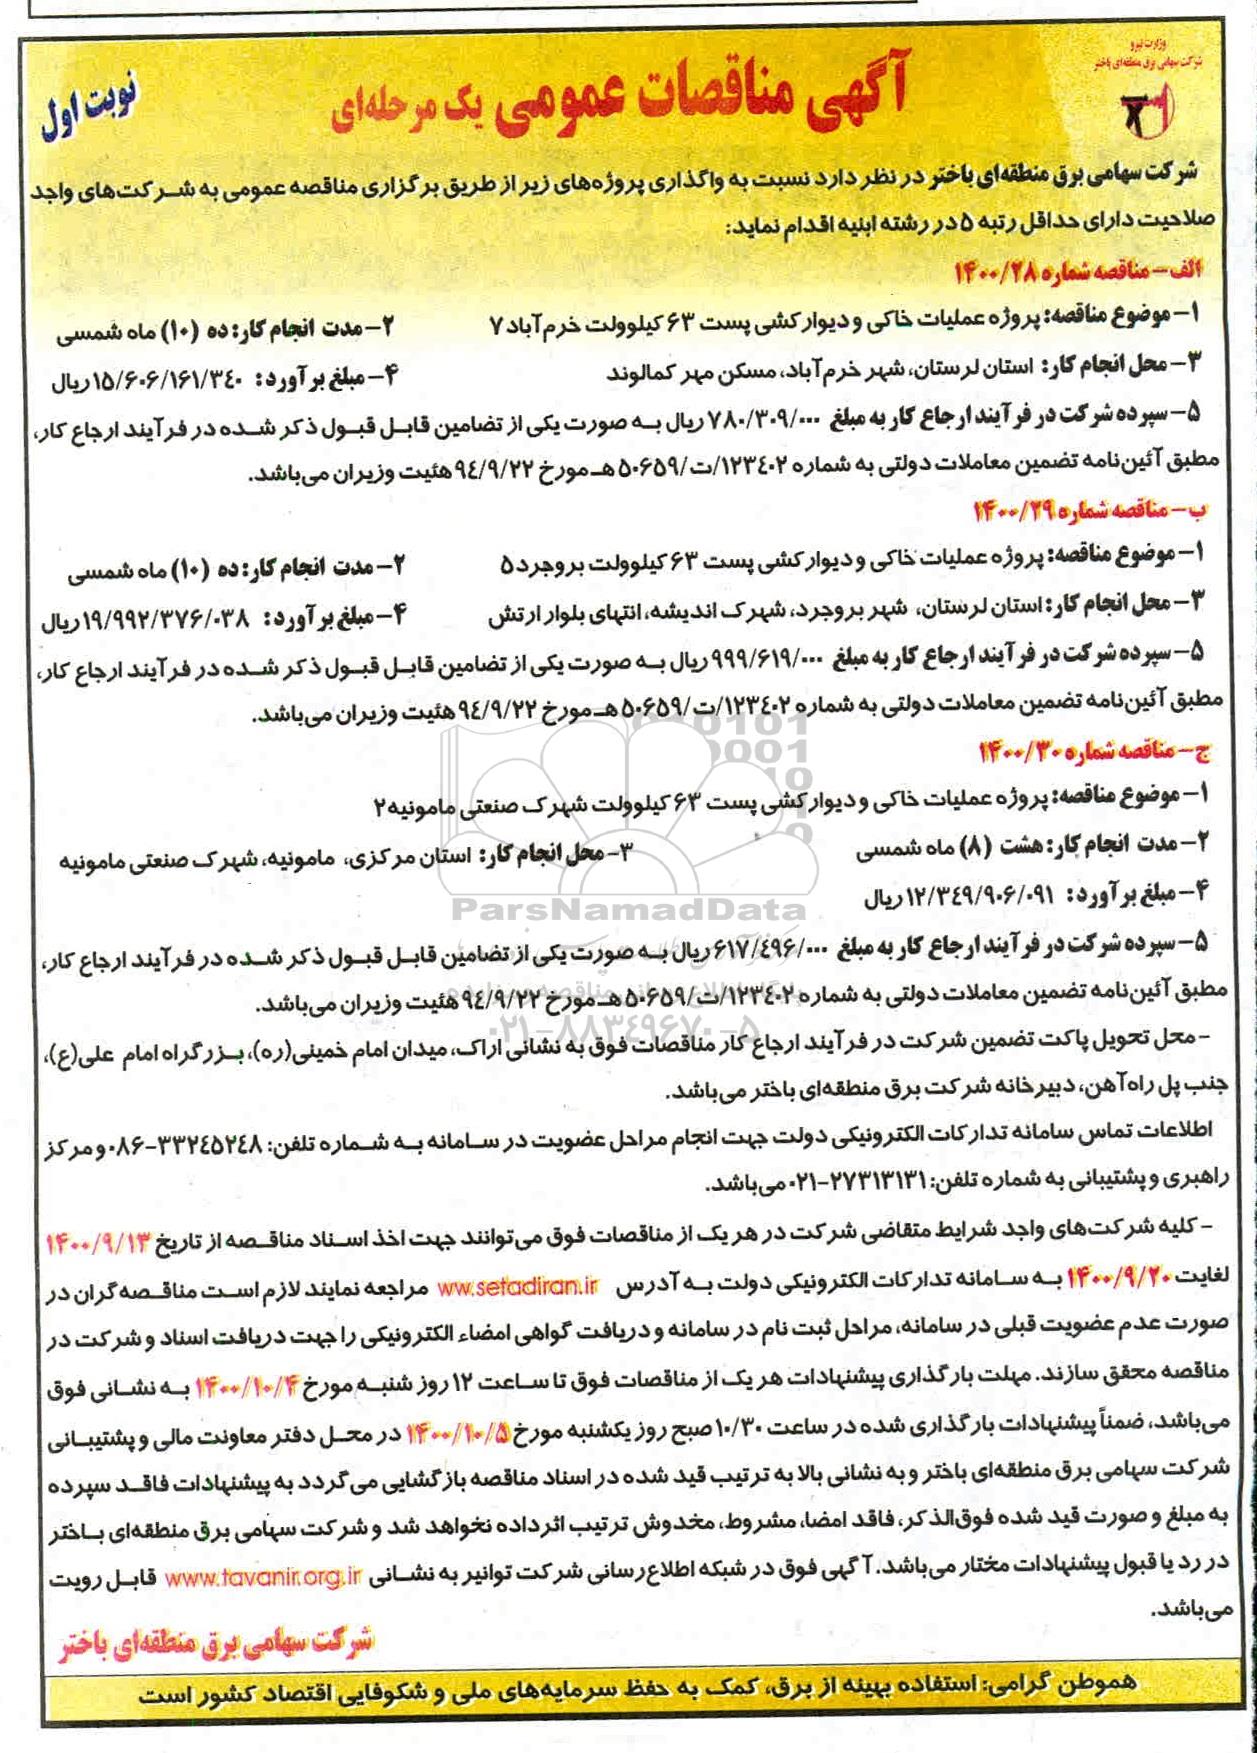 وزارت نیرو
شرکت سهامی برق منطقه‌ای باختر
آگهی مناقصات عمومی یک مرحله‌ای
نوبت اول
شرکت سهامی برق منطقه‌ای باختر در نظر دارد نسبت به واگذاری پروژه‌های زیر از طریق برگزاری مناقصه عمومی به شرکت‌های واجد
صلاحیت دارای حداقل رتبه ۵ در رشته ابنیه اقدام نماید:
الف- مناقصه شماره ۱۴۰۰/۲۸
۱- موضوع مناقصه: پروژه عملیات خاکی و دیوارکشی پست ۶۳ کیلوولت خرم‌آباد ۷
۲- مدت انجام کار: ده (۱۰) ماه شمسی
۳- محل انجام کار: استان لرستان، شهر خرم‌آباد، مسکن مهر کمالوند
۴- مبلغ برآورد: ۱۵/۶۰۶/۱۶۱/۳۴۰ ریال
۵- سپرده شرکت در فرآیند ارجاع کار به مبلغ ۷۸۰/۳۰۹/۰۰۰ ریال به صورت یکی از تضامین قابل قبول ذکر شده در فرآیند ارجاع کار،
مطبق آئین‌نامه تضمین معاملات دولتی به شماره ۱۲۳۴۰۲/ت/۵۰۶۵۹ هـ مورخ ۹۴/۹/۲۲ هئیت وزیران می‌باشد.
ب- مناقصه شماره ۱۴۰۰/۲۹
۱- موضوع مناقصه: پروژه عملیات خاکی و دیوارکشی پست ۶۳ کیلوولت بروجرد ۵
۲- مدت انجام کار: ده (۱۰) ماه شمسی
۳- محل انجام کار: استان لرستان، شهر بروجرد، شهرک اندیشه، انتهای بلوار ارتش
۴- مبلغ برآورد: ۱۹/۹۹۲/۳۷۶/۰۳۸ ریال
۵- سپرده شرکت در فرآیند ارجاع کار به مبلغ ۹۹۹/۶۱۹/۰۰۰ ریال به صورت یکی از تضامین قابل قبول ذکر شده در فرآیند ارجاع کار،
مطبق آئین‌نامه تضمین معاملات دولتی به شماره ۱۲۳۴۰۲/ت/۵۰۶۵۹ هـ مورخ ۹۴/۹/۲۲ هئیت وزیران می‌باشد.
ج- مناقصه شماره ۱۴۰۰/۳۰
۱- موضوع مناقصه: پروژه عملیات خاکی و دیوارکشی پست ۶۳ کیلوولت شهرک صنعتی مامونیه ۲
۲- مدت انجام کار: هشت (۸) ماه شمسی
۳- محل انجام کار: استان مرکزی، مامونیه، شهرک صنعتی مامونیه
۴- مبلغ برآورد: ۱۲/۳۴۹/۹۰۶/۰۹۱ ریال
ParsNamadData
۵- سپرده شرکت در فرآیند ارجاع کار به مبلغ ۶۱۷/۴۹۶/۰۰۰ ریال به صورت یکی از تضامین قابل قبول ذکر شده در فرآیند ارجاع کار،
مطبق آئین‌نامه تضمین معاملات دولتی به شماره ۱۲۳۴۰۲/ت/۵۰۶۵۹ هـ مورخ ۹۴/۹/۲۲ هئیت وزیران می‌باشد.
۰۲۱-۸۸۳۴۹۶۷۰-۵
- محل تحویل پاکت تضمین شرکت در فرآیند ارجاع کار مناقصات فوق به نشانی اراک، میدان امام خمینی(ره)، بزرگراه امام علی(ع)،
جنب پل راه‌آهن، دبیرخانه شرکت برق منطقه‌ای باختر می‌باشد.
اطلاعات تماس سامانه تدارکات الکترونیکی دولت جهت انجام مراحل عضویت در سامانه به شماره تلفن: ۳۳۲۴۵۲۴۸-۰۸۶ و مرکز
راهبری و پشتیبانی به شماره تلفن: ۲۷۳۱۳۱۳۱-۰۲۱ می‌باشد.
- کلیه شرکت‌های واجد شرایط متقاضی شرکت در هر یک از مناقصات فوق می‌توانند جهت اخذ اسناد مناقصه از تاریخ ۱۴۰۰/۹/۱۳
لغایت ۱۴۰۰/۹/۲۰ به سامانه تدارکات الکترونیکی دولت به آدرس ww.setadiran.ir مراجعه نمایند لازم است مناقصه‌گران در
صورت عدم عضویت قبلی در سامانه، مراحل ثبت نام در سامانه و دریافت گواهی امضاء الکترونیکی را جهت دریافت اسناد و شرکت در
مناقصه محقق سازند. مهلت بارگذاری پیشنهادات هر یک از مناقصات فوق تا ساعت ۱۲ روز شنبه مورخ ۱۴۰۰/۱۰/۴ به نشانی فوق
می‌باشد، ضمناً پیشنهادات بارگذاری شده در ساعت ۱۰/۳۰ صبح روز یکشنبه مورخ ۱۴۰۰/۱۰/۵ در محل دفتر معاونت مالی و پشتیبانی
شرکت سهامی برق منطقه‌ای باختر و به نشانی بالا به ترتیب قید شده در اسناد مناقصه بازگشایی می‌گردد به پیشنهادات فاقد سپرده
به مبلغ و صورت قید شده فوق‌الذکر، فاقد امضا، مشروط، مخدوش ترتیب اثر داده نخواهد شد و شرکت سهامی برق منطقه‌ای باختر
در رد یا قبول پیشنهادات مختار می‌باشد. آگهی فوق در شبکه اطلاع‌رسانی شرکت توانیر به نشانی www.tavanir.org.ir قابل رویت
می‌باشد.
شرکت سهامی برق منطقه‌ای باختر
هموطن گرامی: استفاده بهینه از برق، کمک به حفظ سرمایه‌های ملی و شکوفایی اقتصاد کشور است